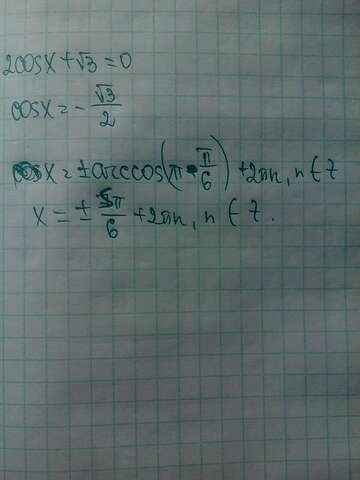 2cosx+√3=0
cosx=-√3/2
x=±arccos(π-π/6)+2πn, n∈Z
x=±5π/6+2πn, n∈Z.